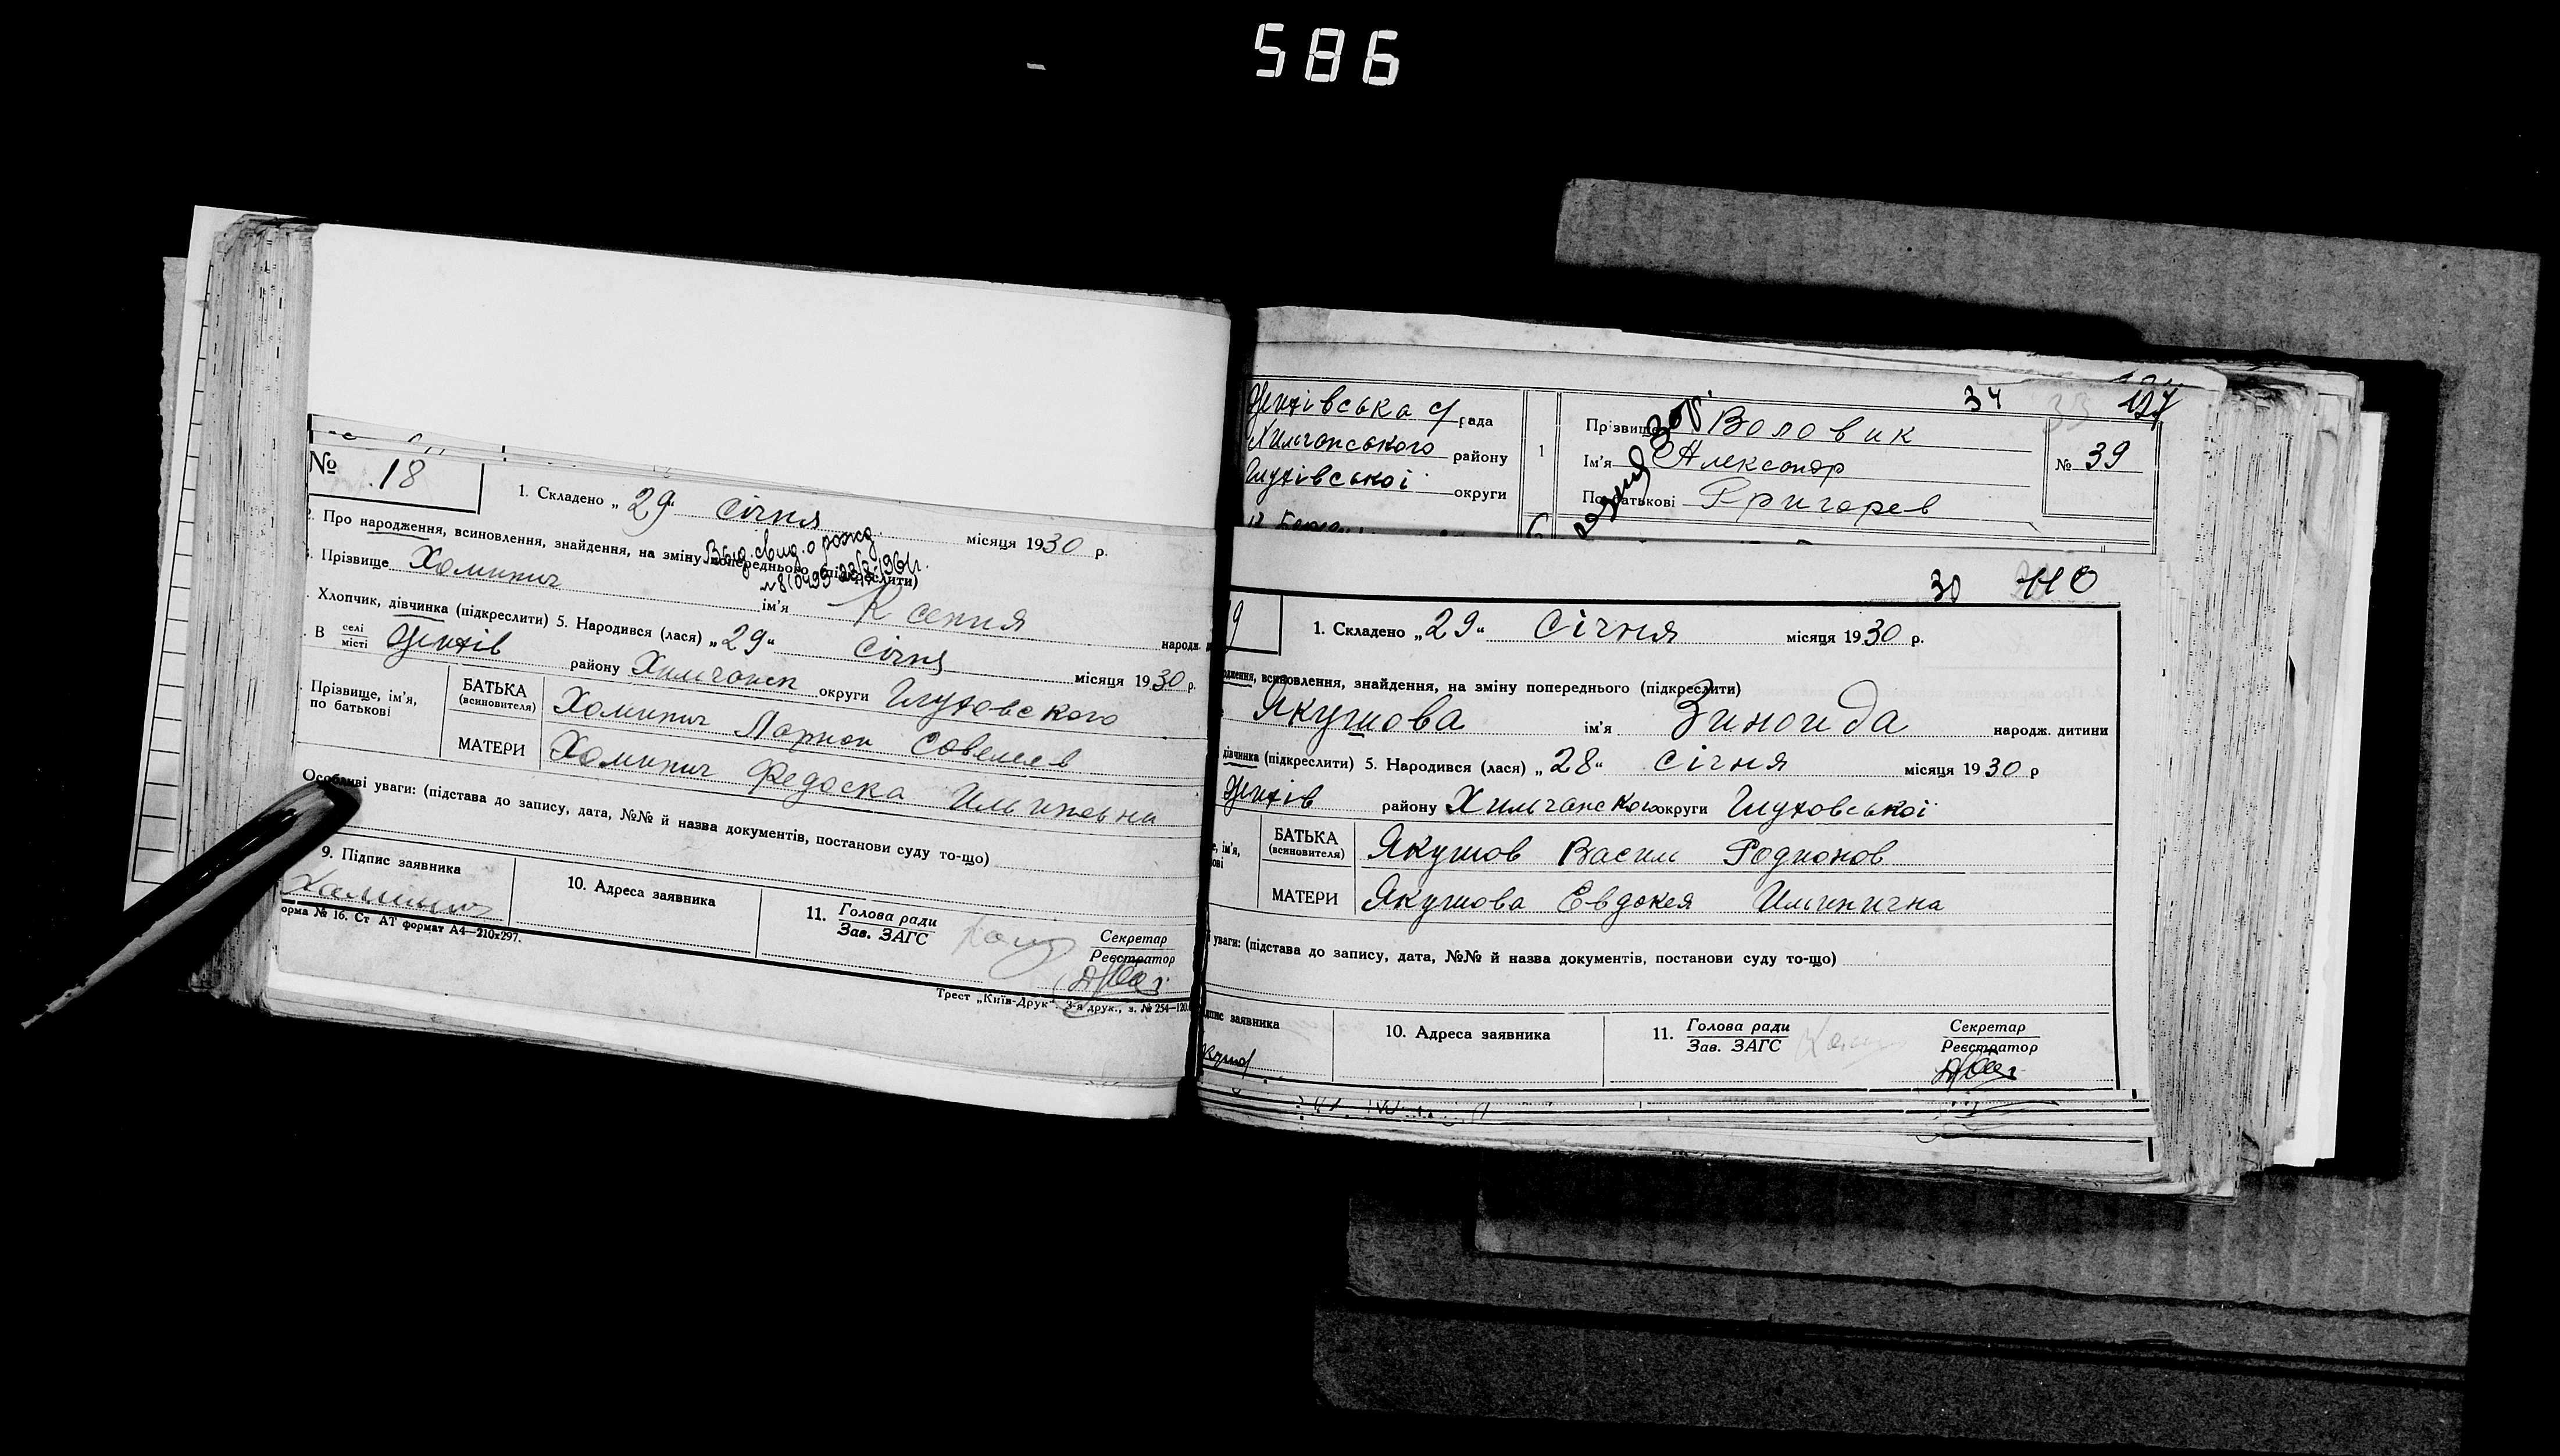 586
№ 18
1. Складено „29“ Січня місяця 1930 р.
Про народження, всиновлення, знайдення, на зміну попереднього (підкреслити)
Выд. свид. о рожд.
Прізвище Хоминич ім'я Ксения народж.
Хлопчик, дівчинка (підкреслити) 5. Народився (лася) „29“ Січня місяця 1930 р.
В селі місті району округи Глуховского
Прізвище, ім'я, по батькові
БАТЬКА (всиновителя) Хоминич Ларион Савелиев
МАТЕРИ Хоминич Федоска Ильиновна
Особливі уваги: (підстава до запису, дата, №№ й назва документів, постанови суду то-що)
9. Підпис заявника
Хоминич
10. Адреса заявника
11. Голова ради
Зав. ЗАГС
Секретар
Реєстратор
орма № 16. Ст АТ формат А4—210х297.
Трест „Київ-Друк“ 3-я друк., з. № 254—120.
34 33
рада
району
Глухівської округи
1
Прізвище Воловик
Ім'я Александр
По батькові Григорев
№ 39
30 110
9
1. Складено „29“ Січня місяця 1930 р.
всиновлення, знайдення, на зміну попереднього (підкреслити)
Якушова ім'я Зиноида народж. дитини
дівчинка (підкреслити) 5. Народився (лася) „28“ Січня місяця 1930 р
району округи Глуховської
БАТЬКА (всиновителя) Якушов Васил Родионов
МАТЕРИ Якушова Евдокея Ильинична
уваги: (підстава до запису, дата, №№ й назва документів, постанови суду то-що)
заявника
10. Адреса заявника
11. Голова ради
Зав. ЗАГС
Секретар
Реєстратор